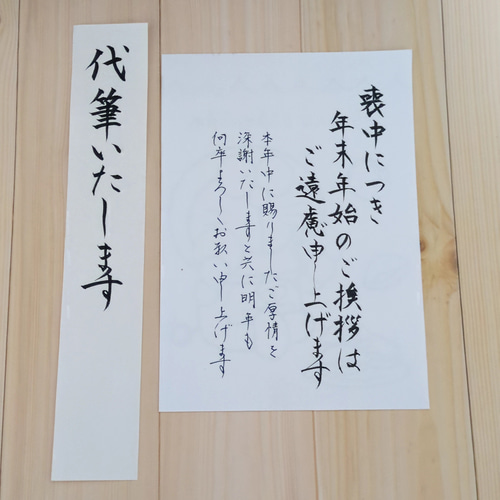 喪中につき
年末年始のご挨拶は
ご遠慮申し上げます
本年中に賜りましたご厚情を
深謝いたしますと共に明年も
何卒よろしくお願い申し上げます
代筆いたします